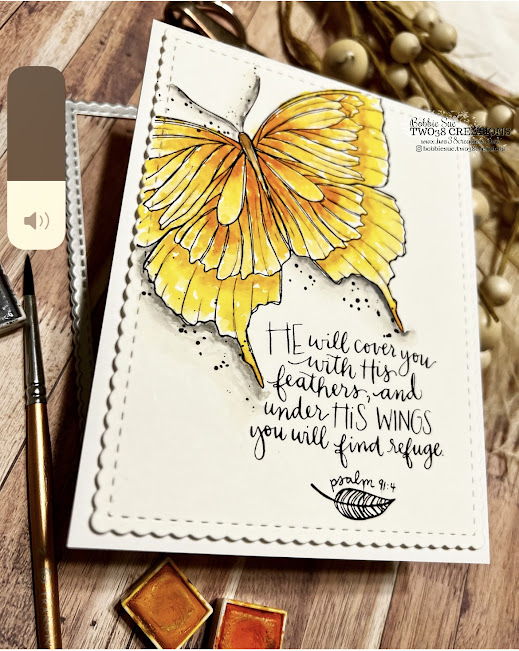 Bobbie Sue
TWO38 CREATIONS
HE will cover you
with His
feathers, and
under HiS WINGS
you will find refuge.
psalm 91:4